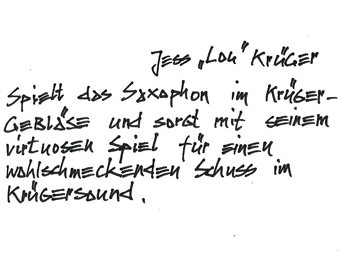 Jess „Lou" Krüger
Spielt das Saxophon im Krüger-
Gebläse und sorgt mit seinem
virtuosen Spiel für einen
wohlschmeckenden Schuss im
Krügersound.